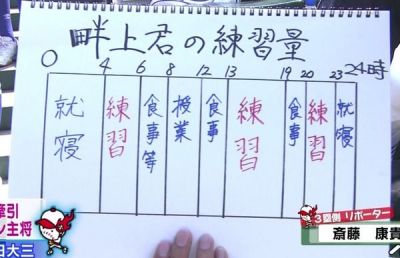 畔上君の練習量
0 4 6 8 12 13 19 20 23 24時
就寝
練習
食事等
授業
食事
練習
食事
練習
就寝
牽引
ン主将
田大三
3塁側 リポーター
斎藤 康貴